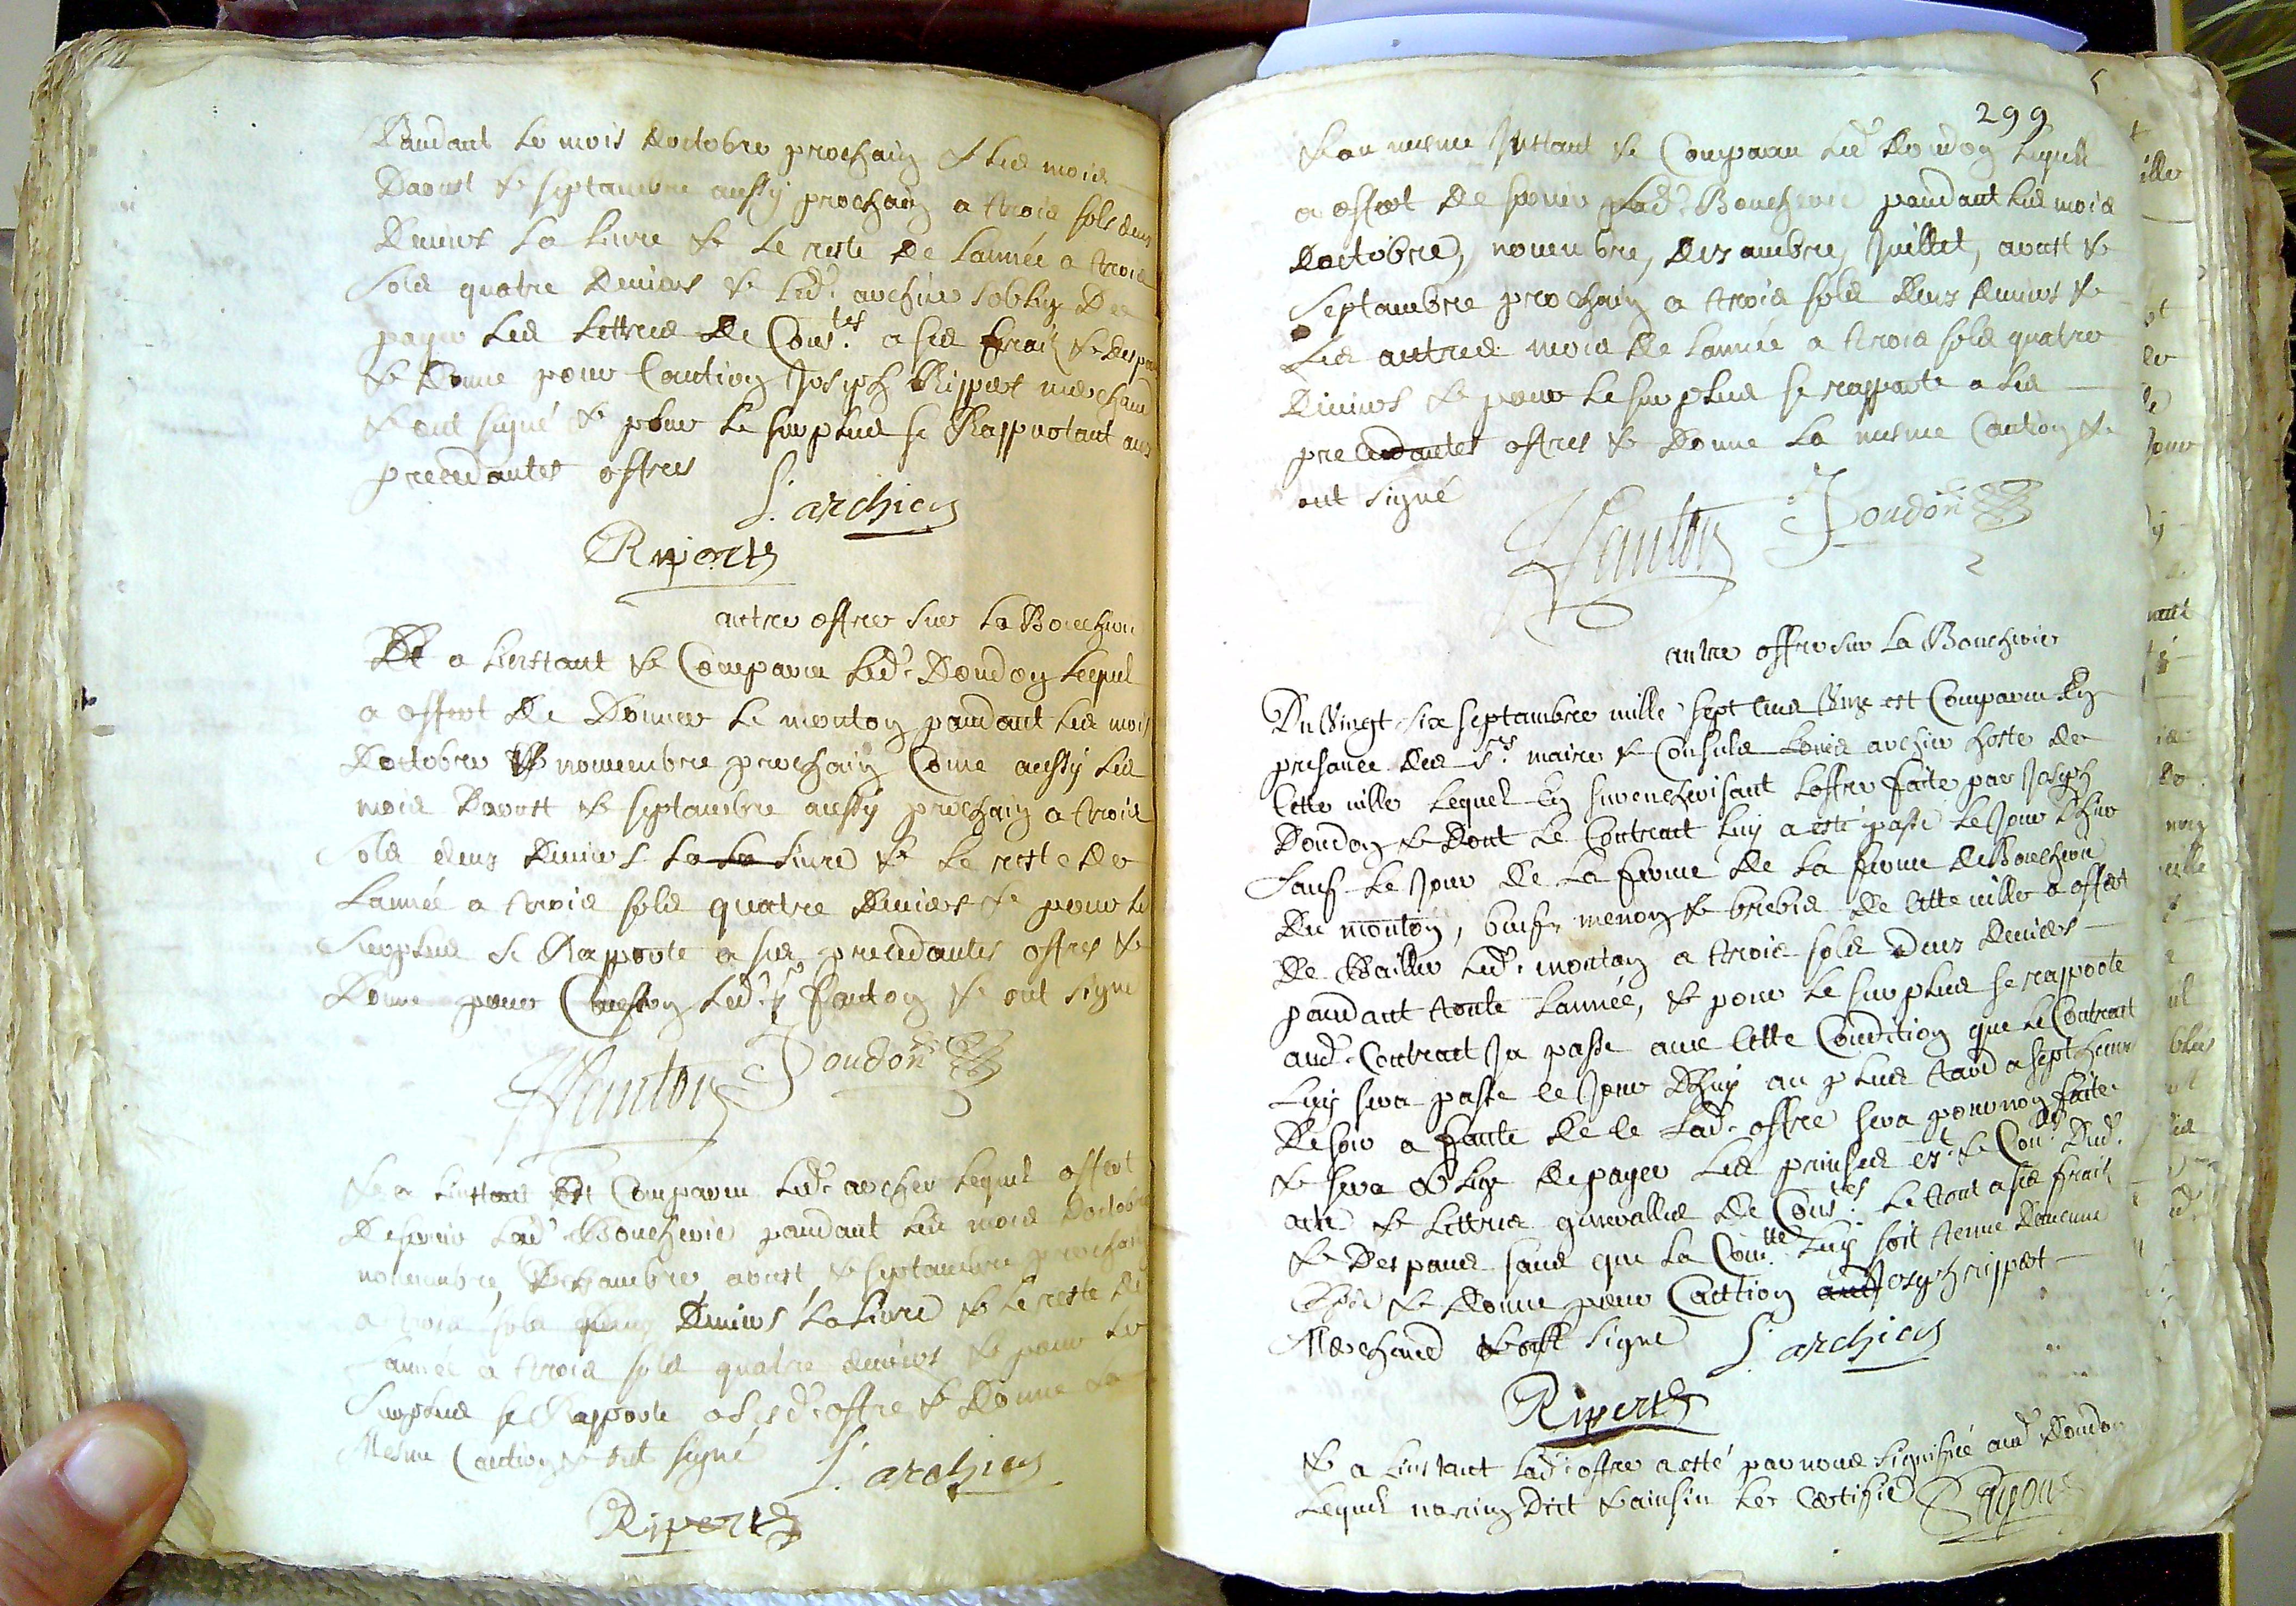 Pandant le mois doctobre prochain & les mois
Daoust & septambre aussy prochain a trois sols deus
Deniers La Livre & Le reste de Lannée a trois
sols quatre Deniers & Led. archier sobligé De
payer Les Lettres de Con.tes a ses fraix & despans
& Donne pour Caution Joseph Rippert marchand
& ont signé & pour Le surplus se Rapportant aus
precedantes offres
L. archier
Ripert
autre offre sur La Boucherie
Et a Linstant & Comparu Led. Doudon Lequel
a offert De Donner Le mouton pandant les mois
Doctobre & novembre prochain Come aussy Les
mois Daoust & septambre aussy prochain a trois
sols deus Deniers La La Livre & Le reste de
Lannée a trois sols quatre Deniers & pour Le
surplus se Rapporte a ses precedantes offres &
Donne pour Caution Led. Sr fanton & ont signé
Fanton Doudon
& a Linstant Est Comparu Led. archier Lequel offert
De servir Lad. Boucherie pandant Les mois Doctobre
novembre, Dezambre, aoust & septambre prochain
a trois sols deus Deniers La Livre & Le reste de
Lannée a trois sols quatre deniers & pour Le
surplus se Rapporte a sesd. offre & Donne La
Mesme Caution & ont signé
L. archier
Ripert
299
& au mesme Instant & Comparu Led. Doudon Lequel
a offert De servir Lad. Boucherie pandant les mois
Doctobre, novembre, Dezambre, Juillet, aoust &
Septambre prochain a trois sols deus deniers &
Les autres mois de Lannée a trois sols quatre
Deniers & pour Le surplus se rapporte a ses
precedantes offres & Donne La mesme Caution &
ont signé
Fanton Doudon
autre offre sur La Boucherie
Du Vingt six septambre mille sept cens Unze est Comparu En
presance des Srs maire & Consuls Louis archier hoste de
Cette ville Lequel En surencherisant Loffre faite par Joseph
Doudon & Dont Le Contract Luy a esté passé Le Jour Dhier
sauf Le Jour de La ferme de La ferme de Boucherie
Du mouton, beuf, menon & brebis de Cette ville a offert
De Bailler Led. mouton a trois sols Deus deniers
pandant toute Lannée, & pour Le surplus se rapporte
aud. Contract Ja passé avec Cette Condition que Le Contract
Luy sera passé ce Jour Dhuy au plus tard a sept heures
De soir a faute de ce Lad. offre sera pour non faite
& sera oblige de payer Les & Con. Dud.
acte & Lettres generalles de Con.tes Le tout a ses fraix
& Despans sans que La Com.tté Luy soit tenue Daucune
Choze & Donne pour Caution aud Joseph rippert
Marchand & ont signé L. archier
Ripert
& a Linstant Lad. offre a esté par nous signifié aud. Doudon
Lequel na rien Dict & ainsin Le Certifie